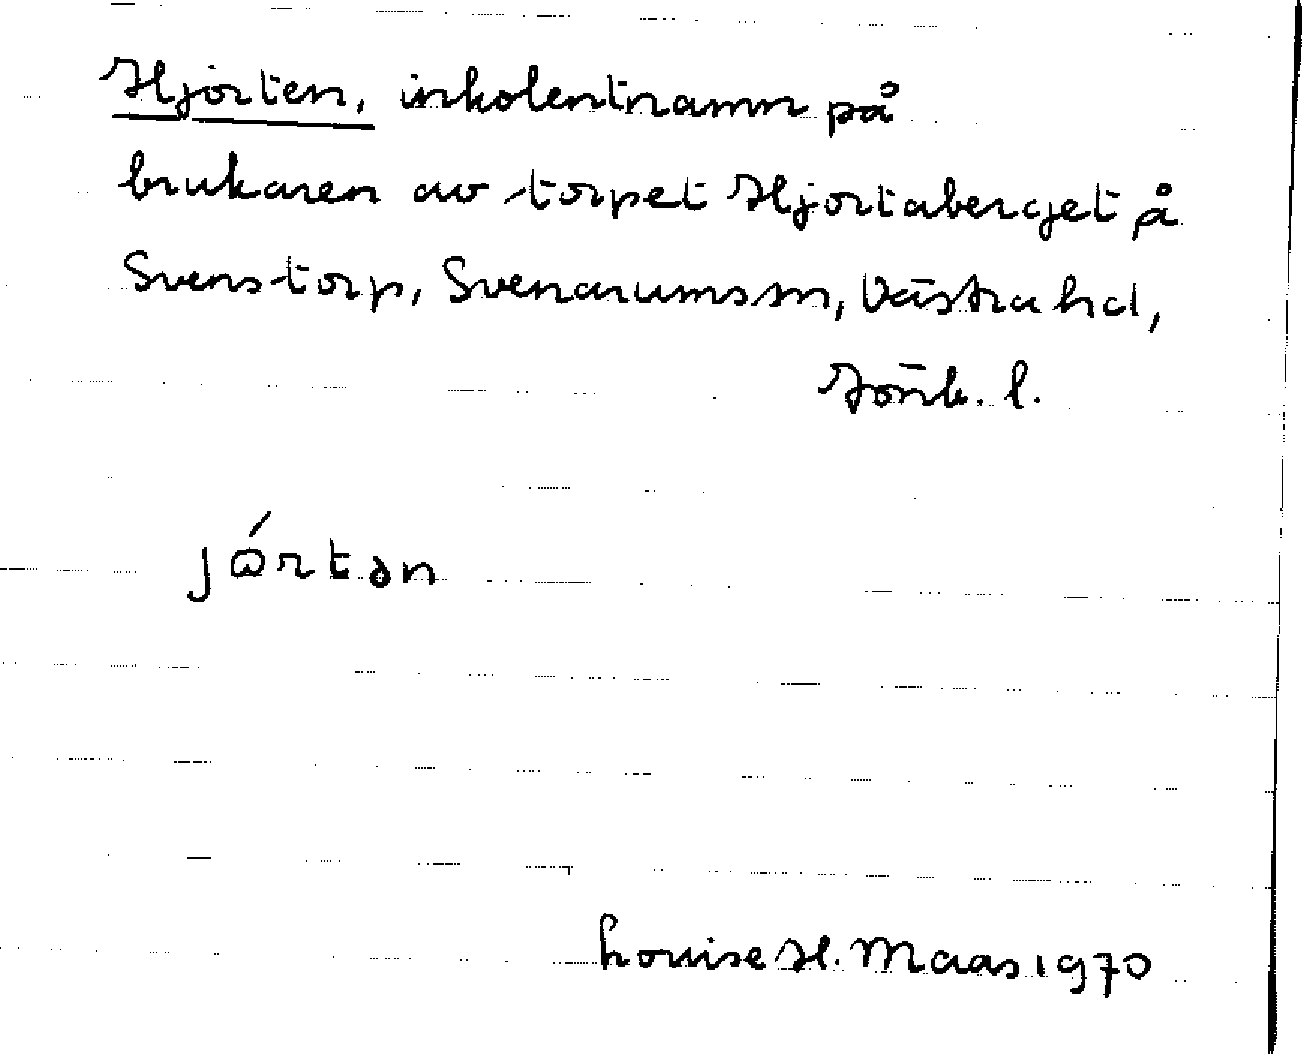 Hjorten, inkolentnamn på
brukaren av torpet Hjortaberget å
Svenstorp, Svenarums sn, Västra hd,
Jönk. l.
jɷ́rtən
Louise H. Maas 1970